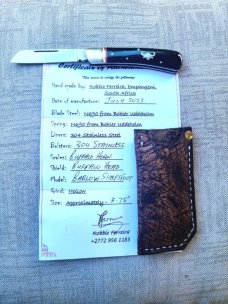 Certificate of
This is to certify the following:
Hand made by: Robbie Ferreira, Empangeni,
South Africa
Date of manufacture: JULY 2023
Blade Steel: N690 from Bohler Uddeholm
N690 from Bohler Uddeholm
Liners: 304 Stainless Steel
Bolsters: 304 STAINLESS
Scales: BUFFALO HORN
Shield: BUFFALO HEAD
Model: BARLOW SHEEPSFOOT
Grind: HOLLOW
Size: Approximately - 8.75"
Robbie Ferreira
+2772 956 1183